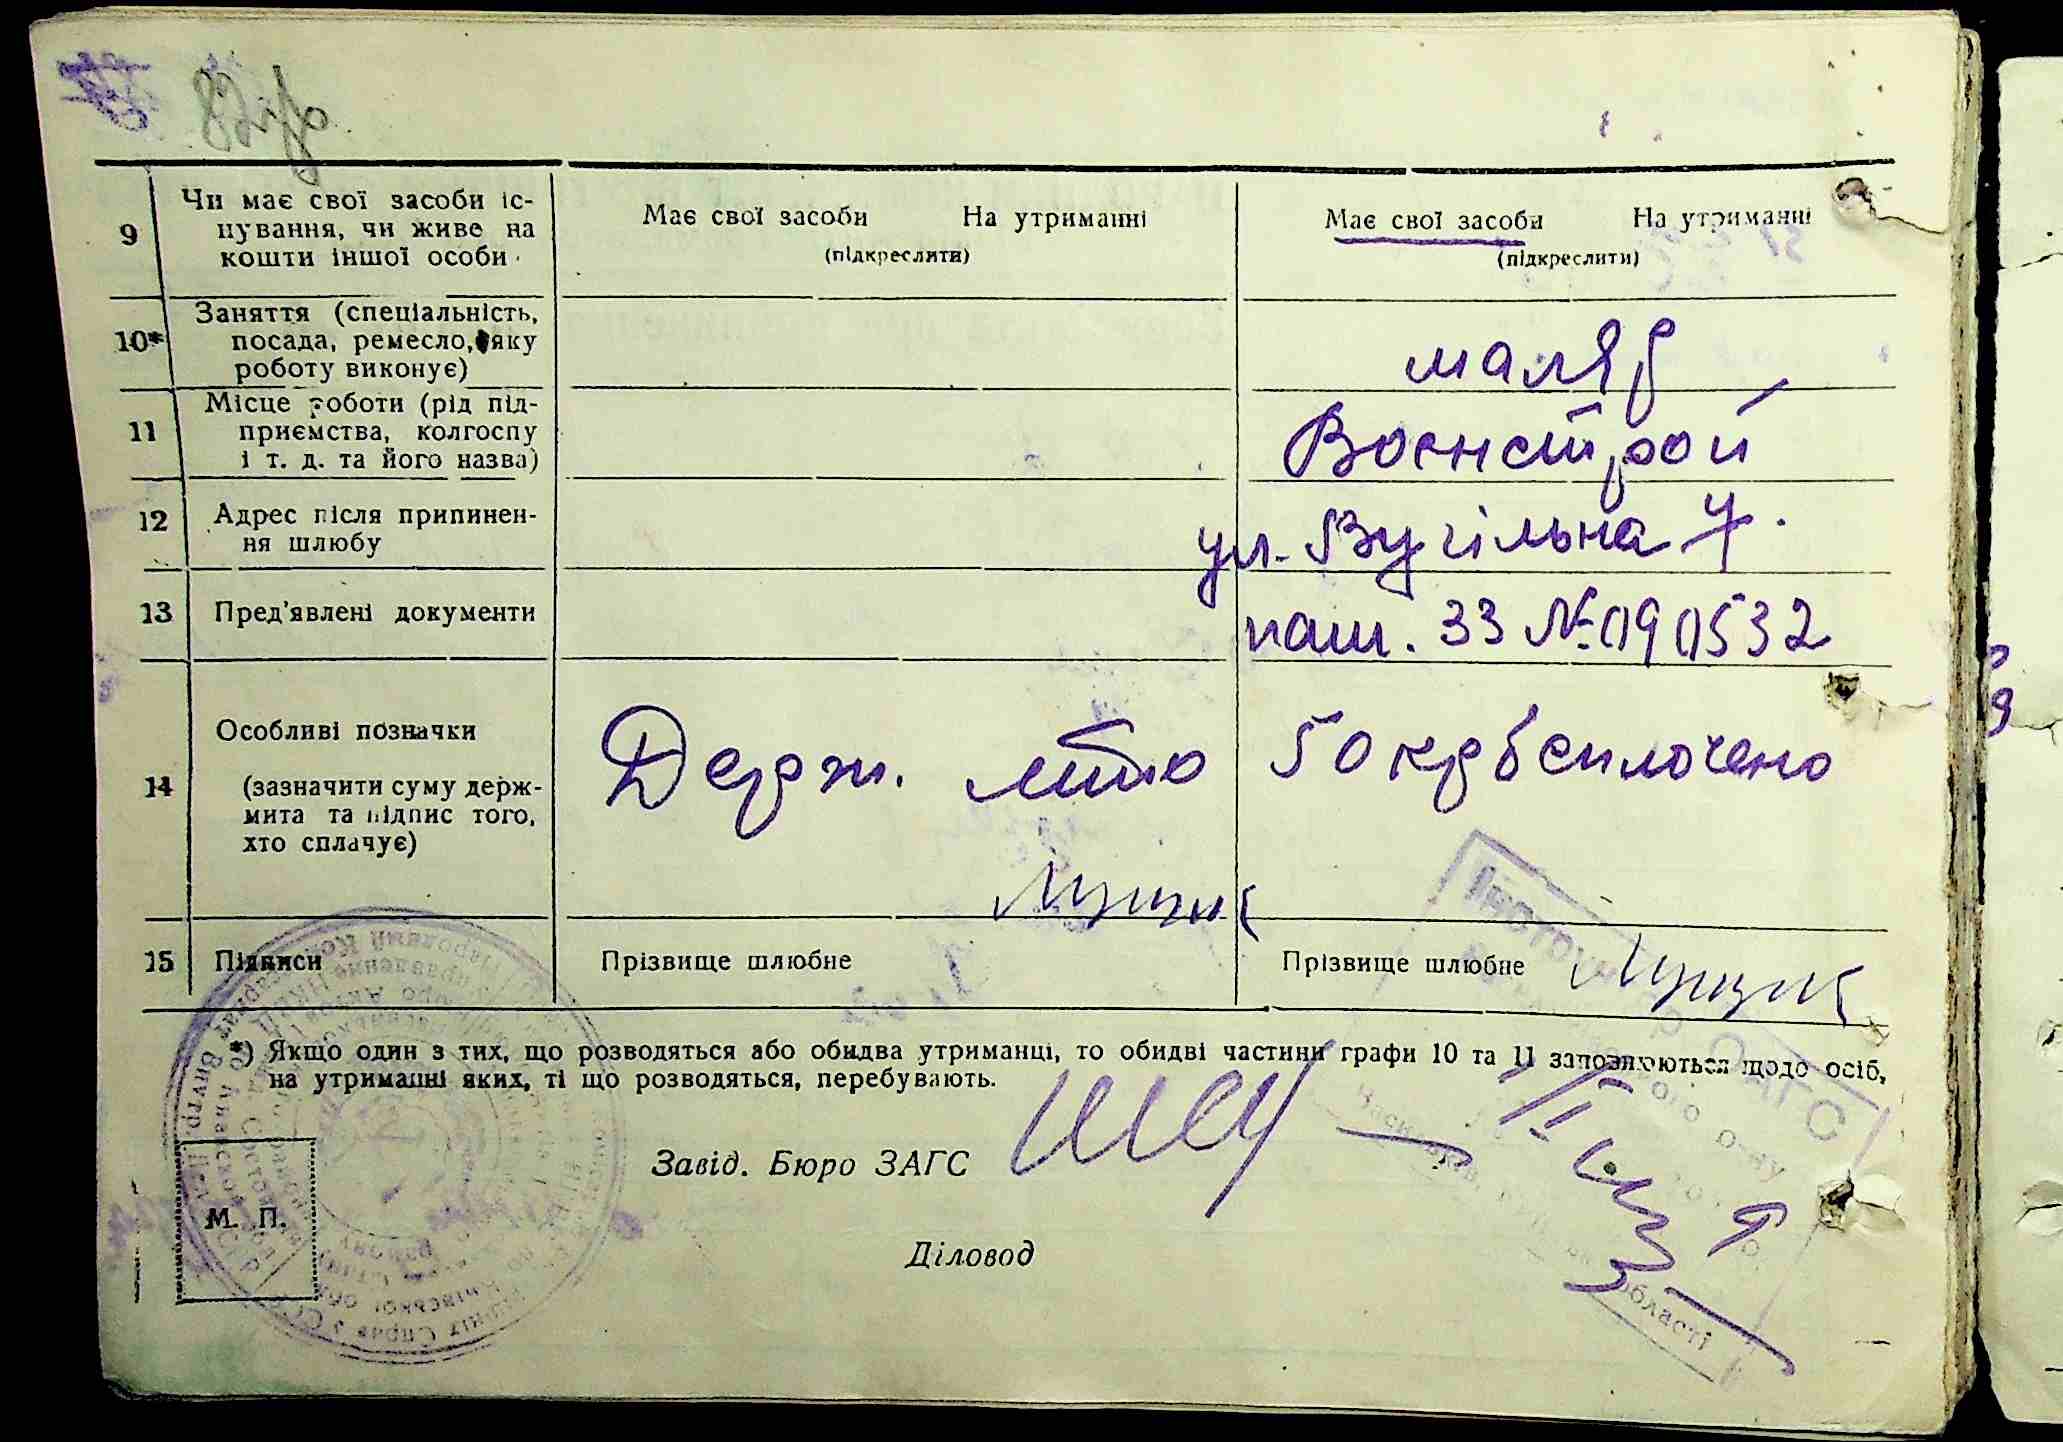 82
9 Чи має свої засоби іс-
нування, чи живе на
кошти іншої особи
Має свої засоби На утриманні
(підкреслити)
Має свої засоби На утриманні
(підкреслити)
10* Заняття (спеціальність,
посада, ремесло, яку
роботу виконує)
маляр
11 Місце роботи (рід під-
приємства, колгоспу
і т. д. та його назва)
Воєнстрой
12 Адрес після припинен-
ня шлюбу
ул. Вугільна 7.
13 Пред'явлені документи
паш. 33 № 090532
14 Особливі позначки
(зазначити суму держ-
мита та підпис того,
хто сплачує)
Держ. мито 50 крб сплочено
15 Підписи
Прізвище шлюбне
Прізвище шлюбне
*) Якщо один з тих, що розводяться або обидва утриманці, то обидві частини графи 10 та 11 заповнюються щодо осіб,
на утриманні яких, ті що розводяться, перебувають.
Завід. Бюро ЗАГС
М. П.
Діловод
області